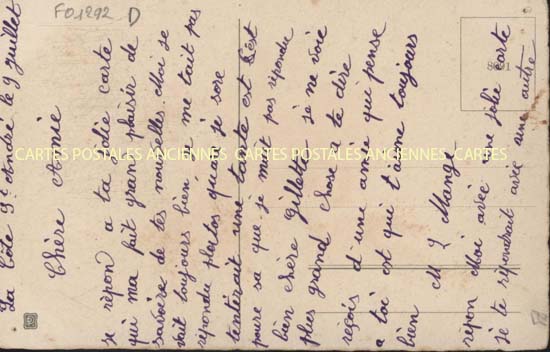 FO1292 D
La Côte St André le 9 juillet
Chère Amie
je répon a ta jolie carte
qui ma fait gran plaisir de
savoire de tes nouvelles. Moi je
vait toujours bien. Tu me tait pas
répondu plustos quar jé sore
une tate est
poure sa que je mait pas répondu
bien chère Gillette je ne voie
plus grand chose a te dire
reçois d'une amie qui pense
a toi et qui t'aime toujours
bien M L Mang
répon Moi avec une jolie carte
je te répondrait avec une autre
CARTES POSTALES ANCIENNES CARTES POSTALES ANCIENNES